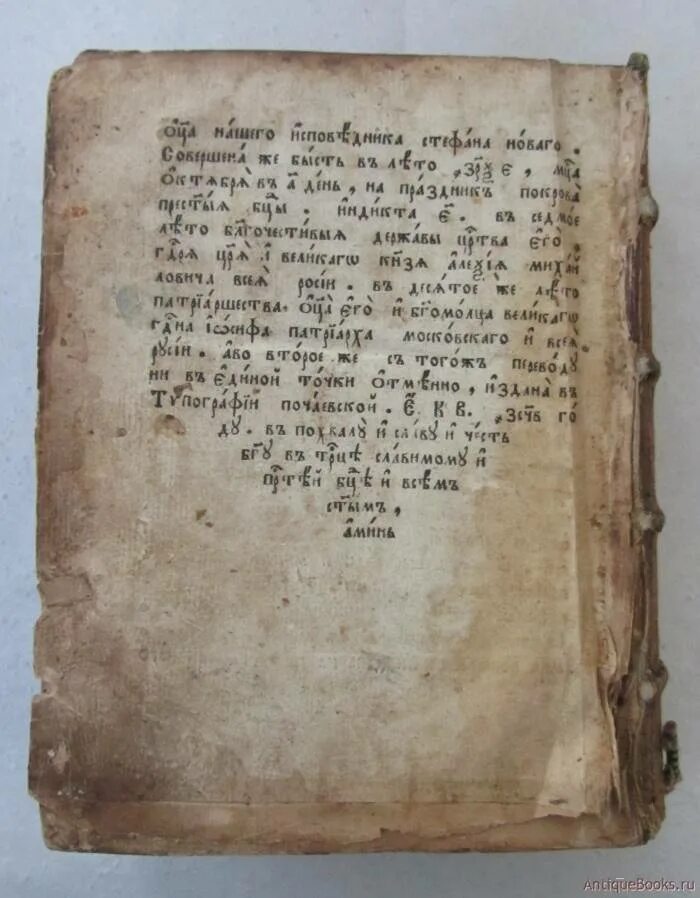 ѻц҃а на́шего и҆сповѣ́дника стефа́на но́ваго .
Соверше́на же бы́сть въ лѣ́то ҂зрн҃е , мц҃а
Ѻ҆ктѧбрѧ̀ въ а҃ де́нь , на пра́здникъ покрова̀
прест҃ы́ѧ бц҃ы . и҆ндікта є҃ . въ седмо́е
лѣ́то бл҃гочести́выѧ держа́вы црт҃ва є҆гѡ̀ .
гдⷭ҇рѧ цр҃ѧ̀ и҆ вели́кагѡ кнѧ́зѧ а҆леѯі́ѧ миха́й
ловича всеѧ̀ росі́и . въ десѧ́тое же лѣ́то
патрїа́ршества ѻ҆ц҃а̀ є҆гѡ̀ и҆ бг҃омо́лца вели́кагѡ
гдⷭ҇на і҆ѡ́сифа патрїа́рха моско́вскаго и҆ всеѧ̀
русі́и . а҆во второ́е же с того́жъ перево́ду
ни въ є҆ди́ной то́чки ѿмѣ́нно , и҆зда́на въ
Тѷпогра́фїи поча́евской . Є҆. К В. ҂зсч҃в го́
ду . въ похвалꙋ̀ и҆ сла́ву и҆ че́сть
бг҃у въ трⷪ҇цѣ сла́вимому и҆
прⷭ҇тѣ́й бц҃ѣ и҆ всѣ́мъ
ст҃ы́мъ ,
а҆ми́нь
AntiqueBooks.ru